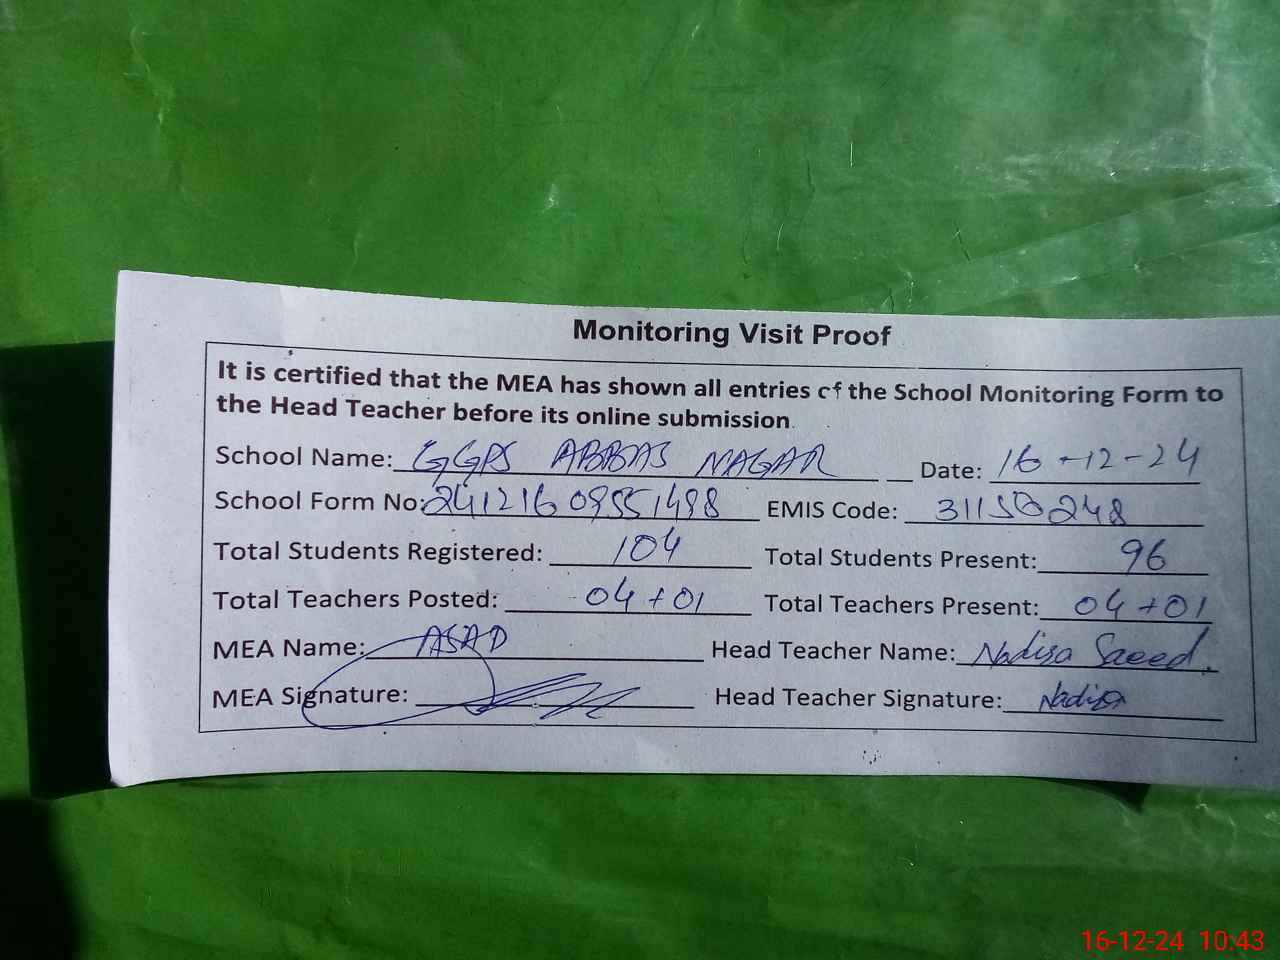 Monitoring Visit Proof
It is certified that the MEA has shown all entries of the School Monitoring Form to
the Head Teacher before its online submission.
School Name: GGPS ABBAS NAGAR Date: 16-12-24
School Form No: 24121609551498 EMIS Code: 31150248
Total Students Registered: 104 Total Students Present: 96
Total Teachers Posted: 04+01 Total Teachers Present: 04+01
MEA Name: ASAD Head Teacher Name: Nadiya Saeed.
MEA Signature: Head Teacher Signature: Nadiya
16-12-24 10:43